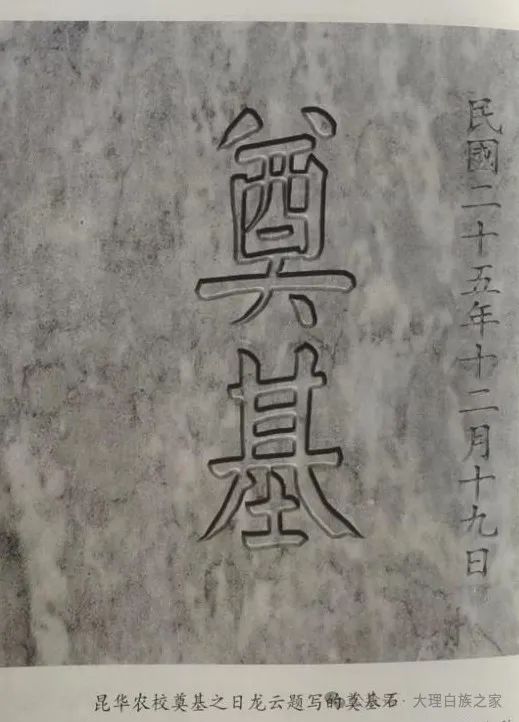 民國二十五年十二月十九日
奠基
昆华农校奠基之日龙云题写的奠基石
大理白族之家